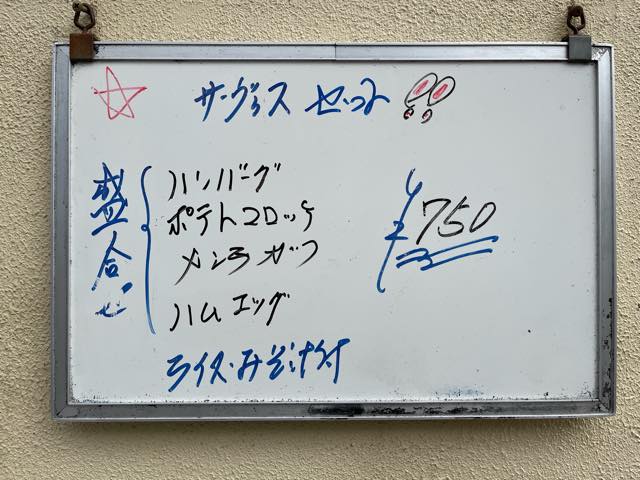 ☆ サーヴィス せっと !!
盛合せ
ハンバーグ
ポテトコロッケ
メンチカツ
ハムエッグ
ライス・みそ汁付
¥750